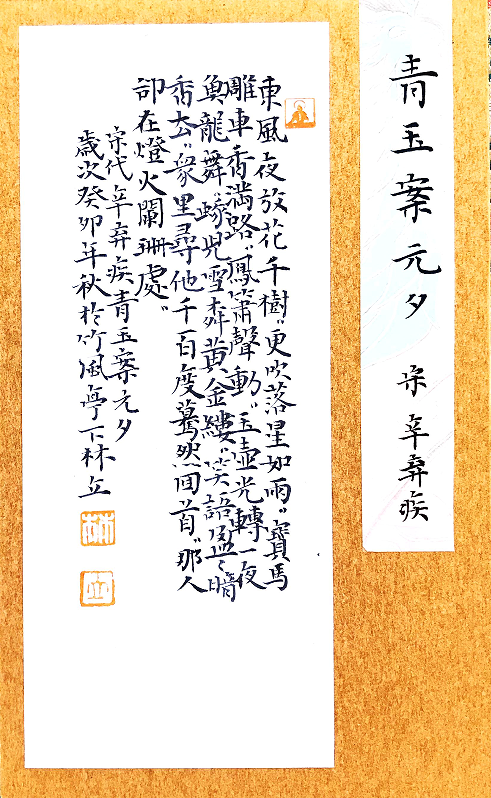 青玉案元夕 宋 辛弃疾
東風夜放花千樹〃更吹落星如雨〃寶馬
雕車香滿路〃鳳簫聲動〃玉壺光轉一夜
魚龍舞〃蛾兒雪柳黃金縷〃笑語盈〻暗
香去〃衆里尋他千百度驀然回首〃那人
却在燈火闌珊處〃
宋代辛弃疾青玉案元夕
歲次癸卯年秋於竹風亭下林立
林
立